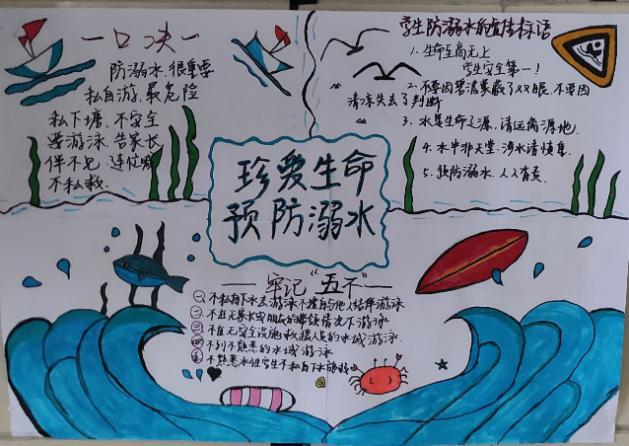 一口决一
防溺水.很重要
私自游.最危险
私下塘.不安全
要游泳.告家长
伴不见.连忙喊
不私救.
学生防溺水的宣传标语
1.生命至高无上
学生安全第一!
2.不要因碧波蒙蔽了双眼.不要因
清凉失去了判断
3.水是生命之源.请远离源地.
4.水中非天堂.涉水请慎重.
5.预防溺水.人人有责.
珍爱生命
预防溺水
牢记"五不"
一 不私自下水去游泳不擅自与他人结伴游泳
二 不在无家长或朋友的带领情况下游泳
三 不在无安全设施救援人员的水域游泳
四 不到不熟悉的水域游泳
不熟悉水性学生不私自下水施救